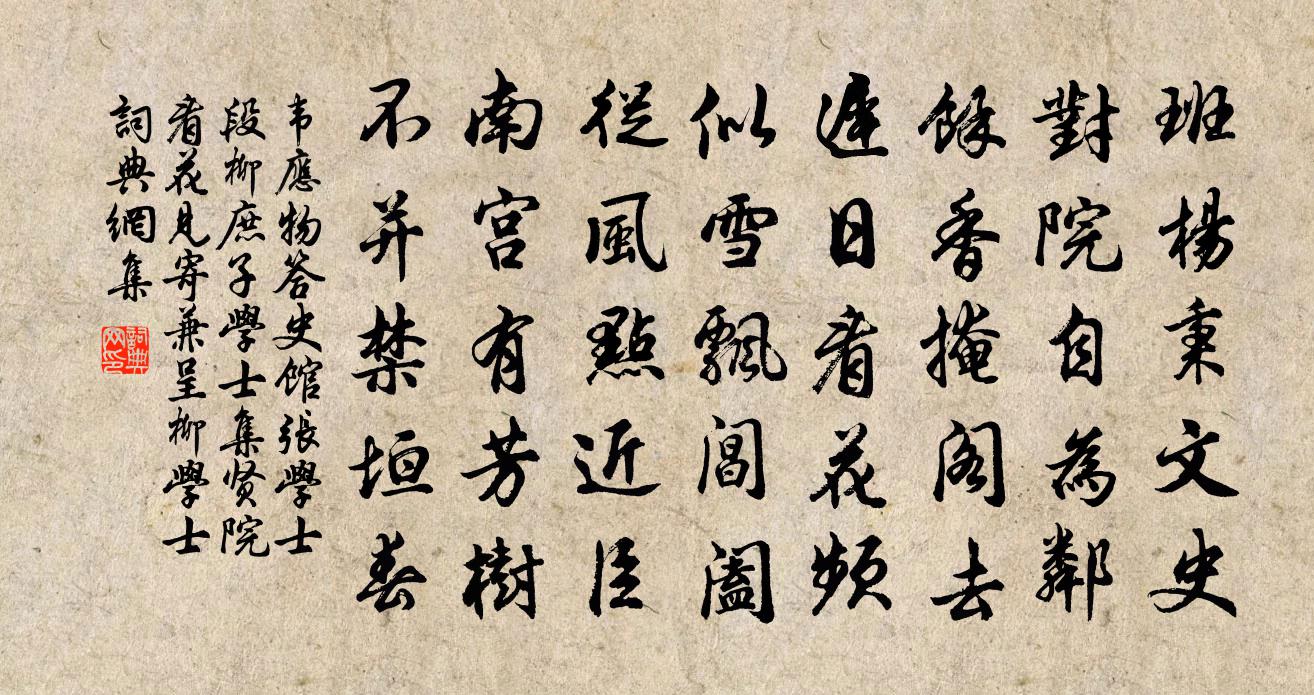 班楊秉文史
對院自為鄰
餘香掩閣去
遲日看花頻
似雪飄閶闔
從風點近臣
南宮有芳樹
不并禁垣春
韦應物答史館張學士
段柳庶子學士集贤院
看花見寄兼呈柳學士
詞典網集
詞典网印